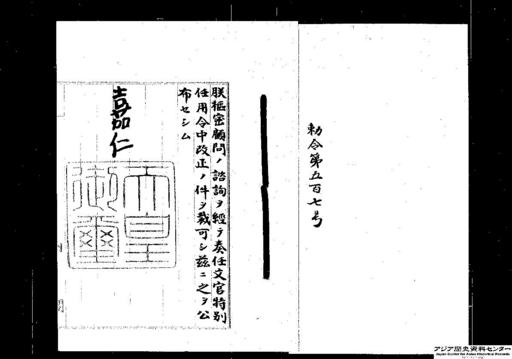 勅令第五百七号
朕樞密顧問ノ諮詢ヲ經テ奏任文官特別
任用令中改正ノ件ヲ裁可シ茲ニ之ヲ公
布セシム
嘉仁
天皇
御璽
アジア歴史資料センター
Japan Center for Asian Historical Records